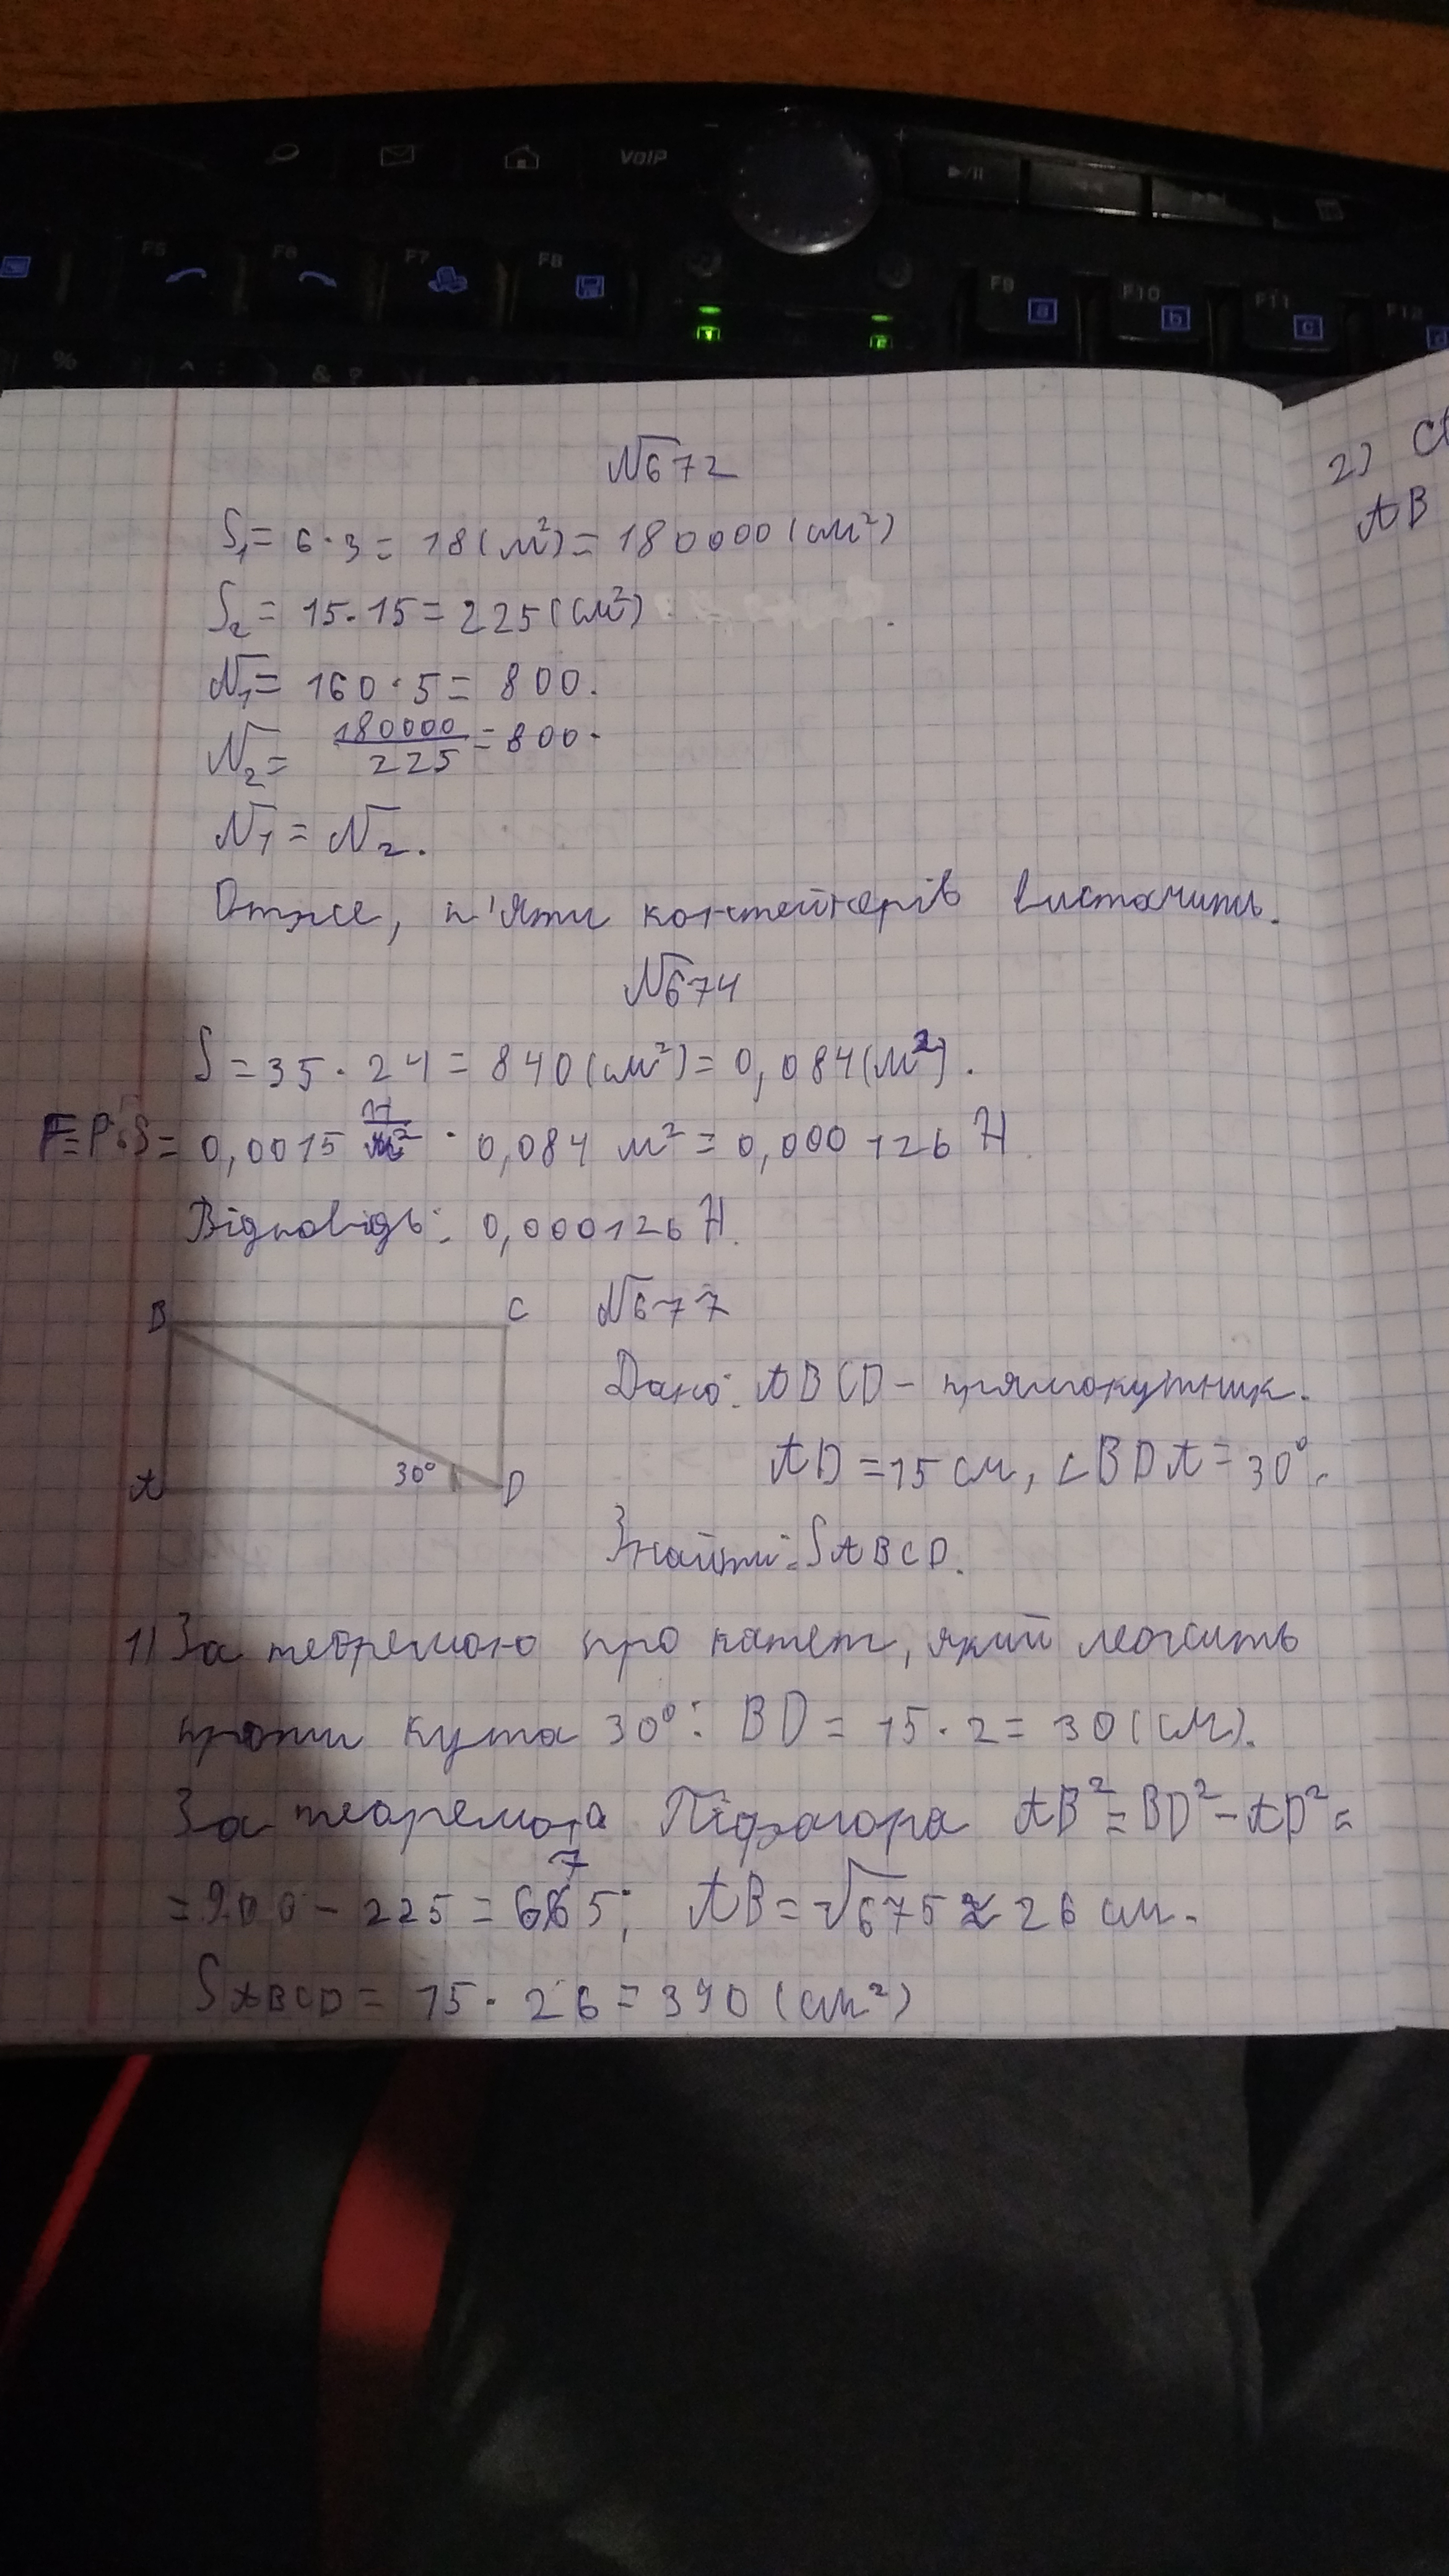 VOIP
F5 F6 F7 F8 F9 a F10 b F11 c F12 d
% ^ & ?
№672
S₁= 6·3 = 18(м²)= 180000(см²)
S₂= 15·15= 225(см²)
N₁= 160·5= 800.
N₂= 180000/225 = 800.
N₁ = N₂.
Отже, п'яти контейнерів вистачить.
№674
S = 35 · 24 = 840(см²)= 0,084(м²).
F=P·S= 0,0015 Н/м² · 0,084 м² = 0,000126 Н
Відповідь: 0,000126 Н.
B C №677
Дано: ABCD – прямокутник.
AD = 15 см, ∠BDA = 30°.
A 30° D
Знайти: SABCD.
1) За теоремою про катет, який лежить
проти кута 30°: BD = 15·2 = 30(см).
За теоремою Піфагора AB²=BD²–AD²=
=900 – 225 = 675; AB=√675 ≈ 26 см.
SABCD = 15·26 = 390 (см²)
2) C
AB